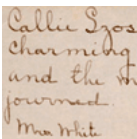 Callie
charming
and the
journed.
Mrs White